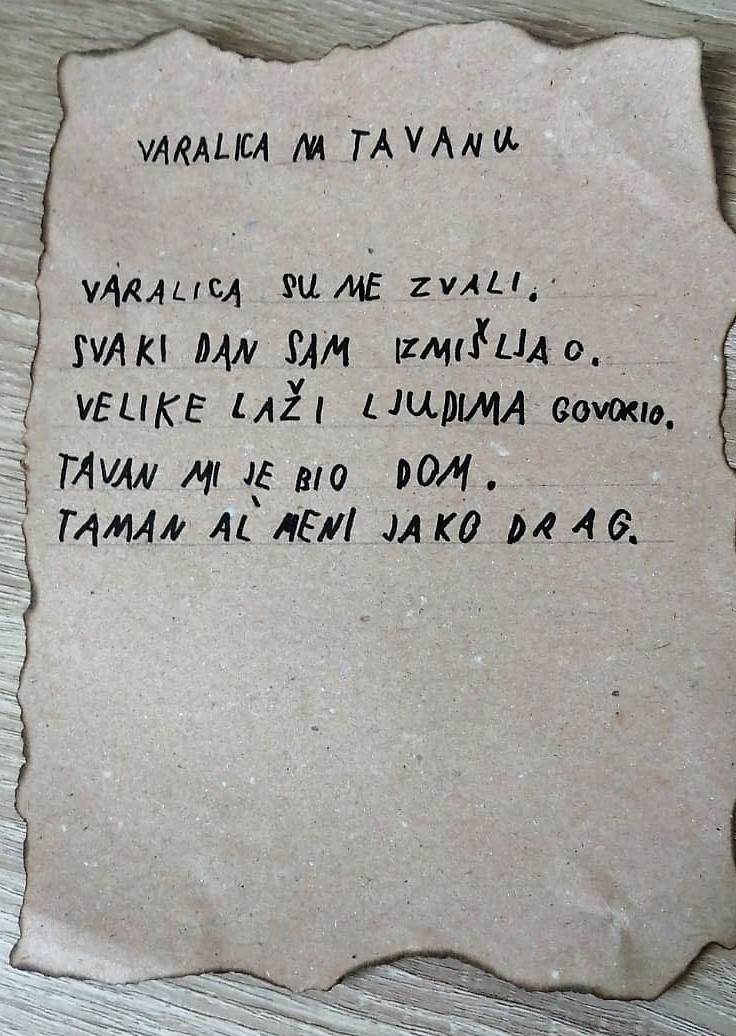 VARALICA NA TAVANU
VARALICA SU ME ZVALI.
SVAKI DAN SAM IZMIŠLJAO.
VELIKE LAŽI LJUDIMA GOVORIO.
TAVAN MI JE BIO DOM.
TAMAN AL' MENI JAKO DRAG.